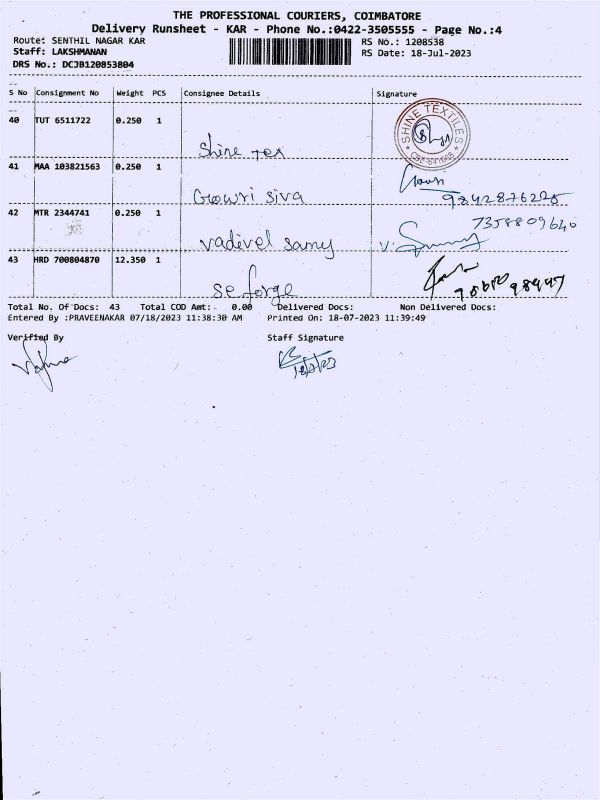 THE PROFESSIONAL COURIERS, COIMBATORE
Delivery Runsheet - KAR - Phone No.:0422-3505555 - Page No.:4
Route: SENTHIL NAGAR KAR RS No.: 1208538
Staff: LAKSHMANAN RS Date: 18-Jul-2023
DRS No.: DCJB120853804
S No Consignment No Weight PCS Consignee Details Signature
40 TUT 6511722 0.250 1
Shine Tex
SHINE TEXTILES
41 MAA 103821563 0.250 1
Gowri siva
9842876225
42 MTR 2344741 0.250 1
7358809640
vadivel samy
43 HRD 700804870 12.350 1
se forge
Total No. Of Docs: 43 Total COD Amt:- 0.00 Delivered Docs: Non Delivered Docs:
Entered By :PRAVEENAKAR 07/18/2023 11:38:30 AM Printed On: 18-07-2023 11:39:49
Verified By Staff Signature